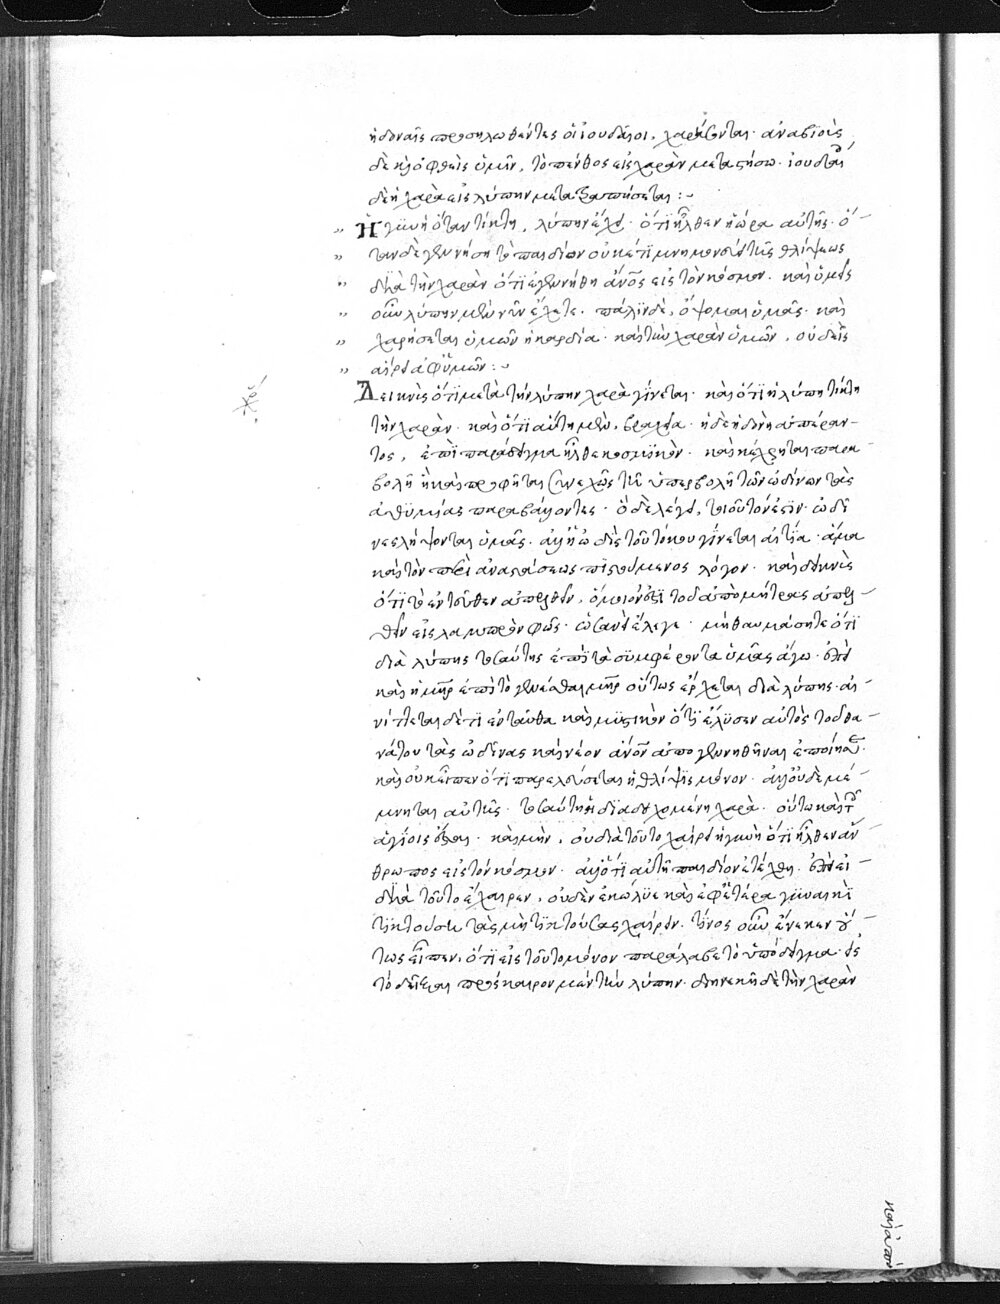 ἡδοναῖς προσηλωθέντες οἱ ἰουδαῖοι, χαροῦνται· ἀναβιοὺς
δὲ καὶ ὀφθεὶς ὑμῖν, τὸ πένθος εἰς χαρὰν μεταστήσω. ἰουδαί
δὲ ἡ χαρὰ εἰς λύπην μεταξαπήσεται :-
Ἡ γυνὴ ὅταν τίκτῃ, λύπην ἔχει· ὅτι ἦλθεν ἡ ὥρα αὐτῆς· ὅ-
ταν δὲ γεννήσῃ τὸ παιδίον οὐκέτι μνημονεύει τῆς θλίψεως
διὰ τὴν χαρὰν ὅτι ἐγεννήθη ἄνος εἰς τὸν κόσμον. καὶ ὑμεῖς
οὖν λύπην μὲν νῦν ἔχετε. πάλιν δὲ, ὄψομαι ὑμᾶς· καὶ
χαρήσεται ὑμῶν ἡ καρδία· καὶ τὴν χαρὰν ὑμῶν, οὐδεὶς
αἴρει ἀφ' ὑμῶν :-
Δεικνὺς ὅτι μετὰ τὴν λύπην χαρὰ γίνεται· καὶ ὅτι ἡ λύπη τίκτει
τὴν χαρὰν· καὶ ὅτι αὕτη μὲν, βραχεῖα· ἡ δὲ ἡδονὴ ἀπέραν-
τος, ἐπὶ παράδειγμα ἦλθε κοσμικὸν· καὶ κέχρηται παρα
βολῇ ᾗ καὶ προφῆται συνεχῶς τῇ ὑπερβολῇ τῶν ὠδίνων τὰς
ἀθυμίας παραβάλλοντες· ὃ δὲ λέγει, τοιοῦτόν ἐστιν· ὠδῖ
νες λήψονται ὑμᾶς· ἀλλ' ἡ ὠδὶς τοῦ τόκου γίνεται αἰτία· ἅμα
καὶ τὸν περὶ ἀναστάσεως πιστούμενος λόγον· καὶ δεικνὺς
ὅτι τὸ ἐντεῦθεν ἀπελθεῖν, ὅμοιόν ἐστι τοῦ ἀπὸ μήτρας ἀπελ-
θεῖν εἰς λαμπρὸν φῶς· ὡσανεὶ ἔλεγε· μὴ θαυμάσητε ὅτι
διὰ λύπης τοιαύτης ἐπὶ τὰ συμφέροντα ὑμᾶς ἄγω· ἐπεὶ
καὶ ἡ μηρ ἐπὶ τὸ γενέσθαι μηρ οὕτως ἔρχεται διὰ λύπης· αἰ-
νίττεται δὲ τι ἐνταῦθα καὶ μυστικὸν ὅτι ἔλυσεν αὐτὸς τοῦ θα-
νάτου τὰς ὠδῖνας καὶ νέον ἄνον ἀπογεννηθῆναι ἐποίησε·
καὶ οὐκ εἶπεν ὅτι παρελεύσεται ἡ θλίψις μόνον· ἀλλ' οὐδὲ μέ-
μνηται αὐτῆς· τοσαύτη ἡ διαδεχομένη χαρὰ· οὕτω καὶ τ
ἁγίοις ἔσται· καὶ μὴν, οὐ διὰ τοῦτο χαίρει ἡ γυνὴ ὅτι ἦλθεν ἄν-
θρωπος εἰς τὸν κόσμον· ἀλλ' ὅτι αὐτῇ παιδίον ἐτέχθη· ἐπεὶ εἰ-
διὰ τοῦτο ἔχαιρεν, οὐδὲν ἐκώλυε καὶ ἐφ' ἑτέρα γυναικὶ
τικτούσῃ τὰς μὴ τικτούσας χαίρειν. τίνος οὖν ἕνεκεν οὕ-
τως εἶπεν; ὅτι εἰς τοῦτο μόνον παρέλαβε τὸ ὑπόδειγμα· εἰς
τὸ δεῖξαι πρόσκαιρον μὲν τὴν λύπην· διηνεκῆ δὲ τὴν χαρὰν